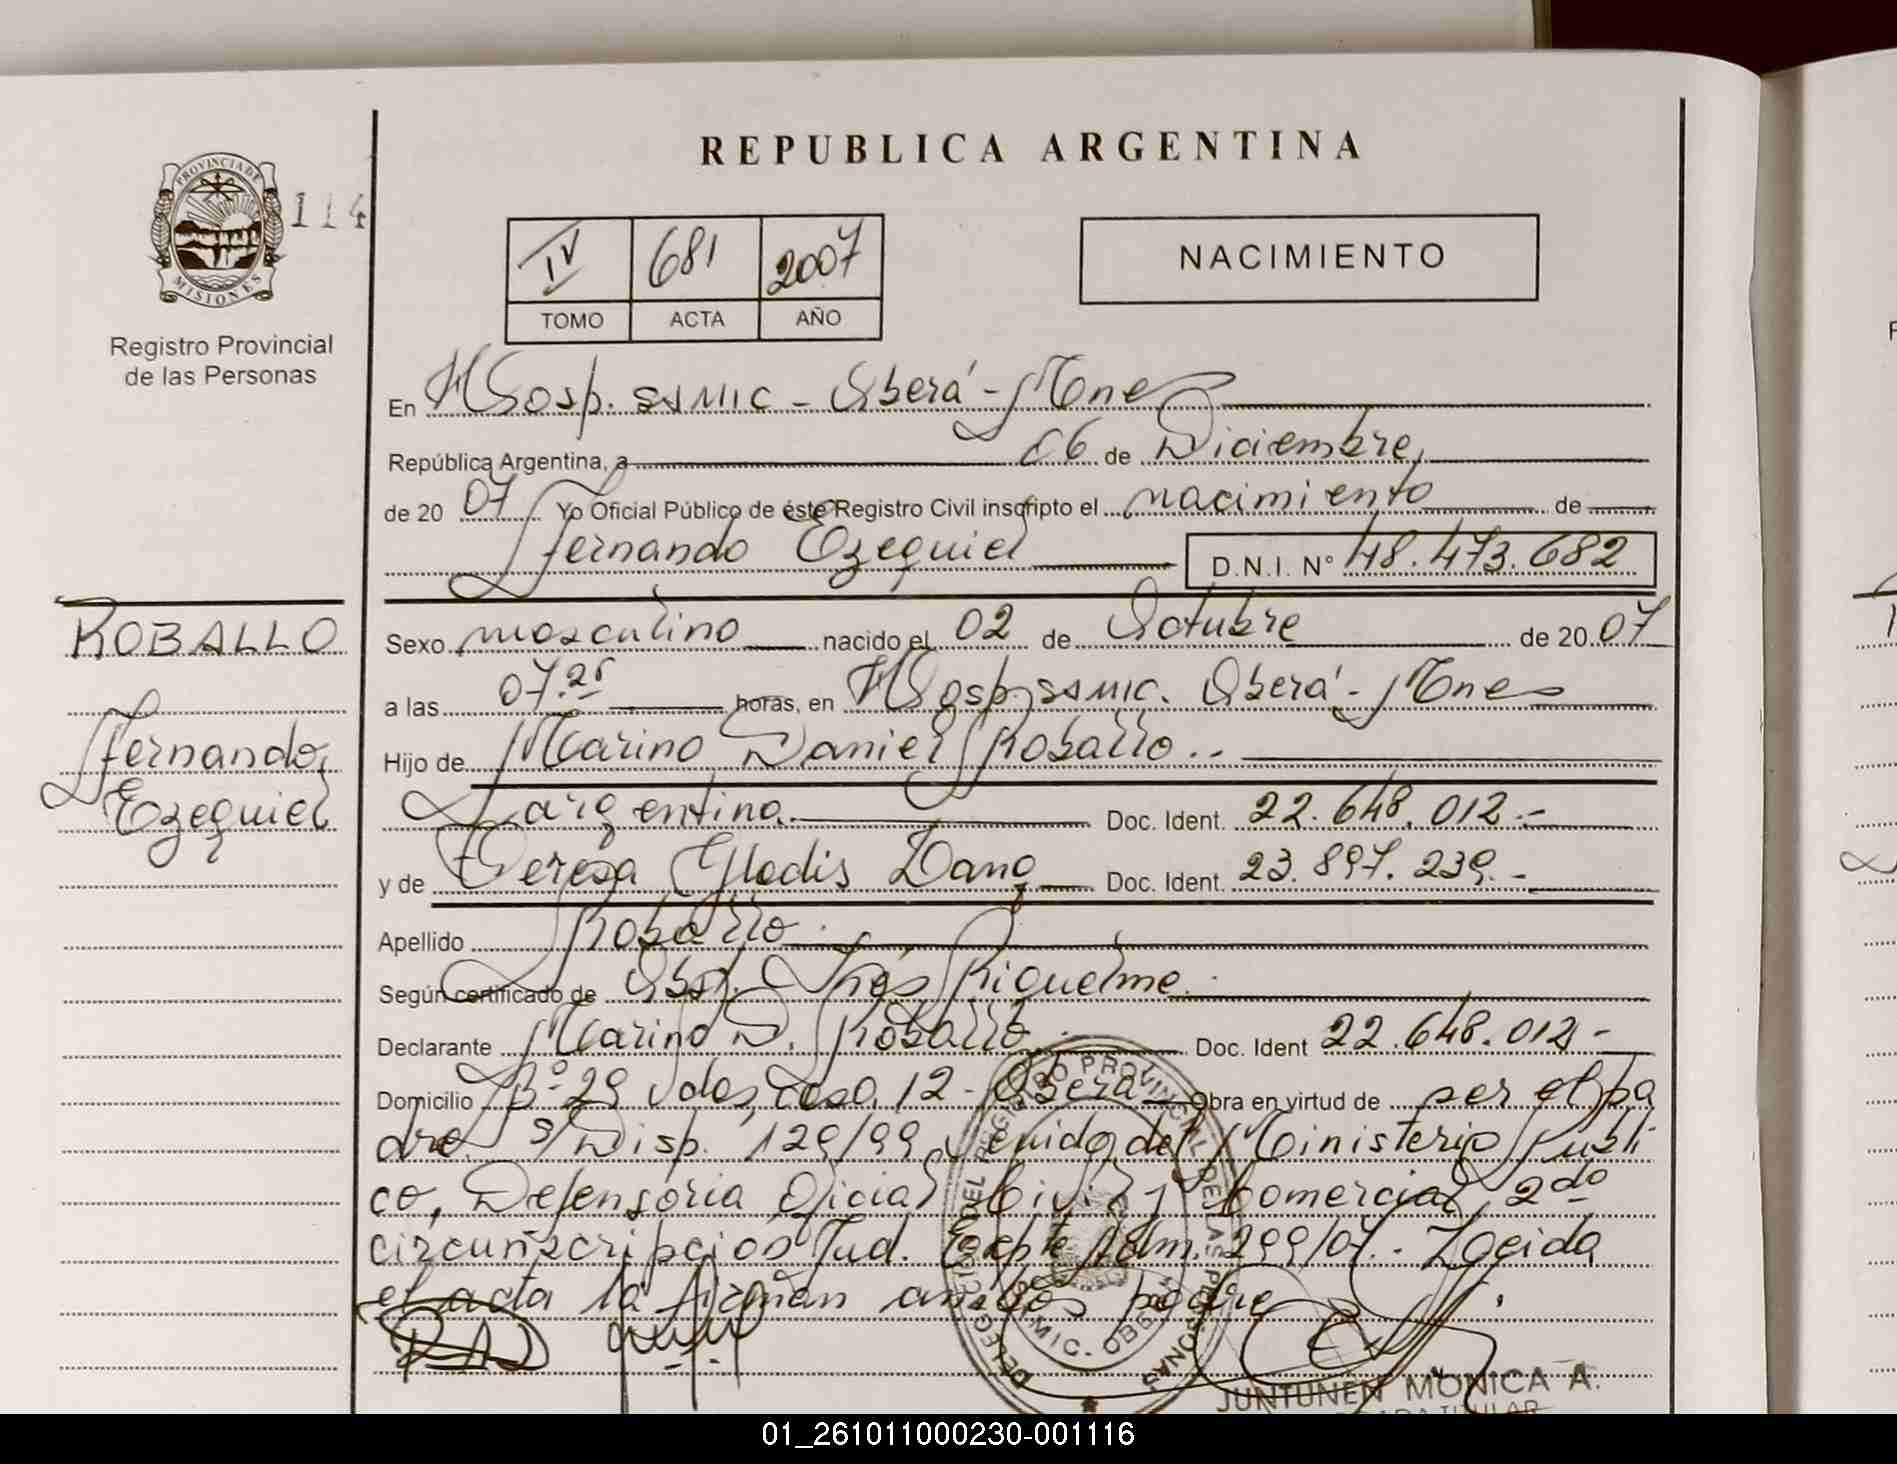 REPUBLICA ARGENTINA
PROVINCIA DE
MISIONES
114
Registro Provincial
de las Personas
IV 681 2007
TOMO ACTA AÑO
NACIMIENTO
En Hosp. SAMIC - Oberá - Mnes
República Argentina, a 06 de Diciembre
de 20 07 Yo Oficial Público de éste Registro Civil inscripto el nacimiento de
Fernando Ezequiel D.N.I. Nº 48.473.682
ROBALLO
Fernando
Ezequiel
Sexo masculino nacido el 02 de Octubre de 20 07
a las 07.25 horas, en Hosp. SAMIC. Oberá - Mnes
Hijo de Marino Daniel Roballo
argentina. Doc. Ident. 22.648.012.-
y de Teresa Gladis Doc. Ident. 23.897.239.-
Apellido Roballo
Según certificado de Obst. Inés Riquelme.
Declarante Marino D. Roballo Doc. Ident 22.648.012-
Domicilio Bº 29 Vdas, casa 12 - Oberá Obra en virtud de per el pa
dre. s/ Disp. 129/99 venida del Ministerio Públi
co, Defensoria Oficial Civil y Comercial 2da
circunscripción Jud. Expte Adm. 299/07.-
el acta la firman ambos padre
DELEGACION DEL REGISTRO PROVINCIAL DE LAS PERSONAS
JUNTUNEN MONICA A.
01_261011000230-001116